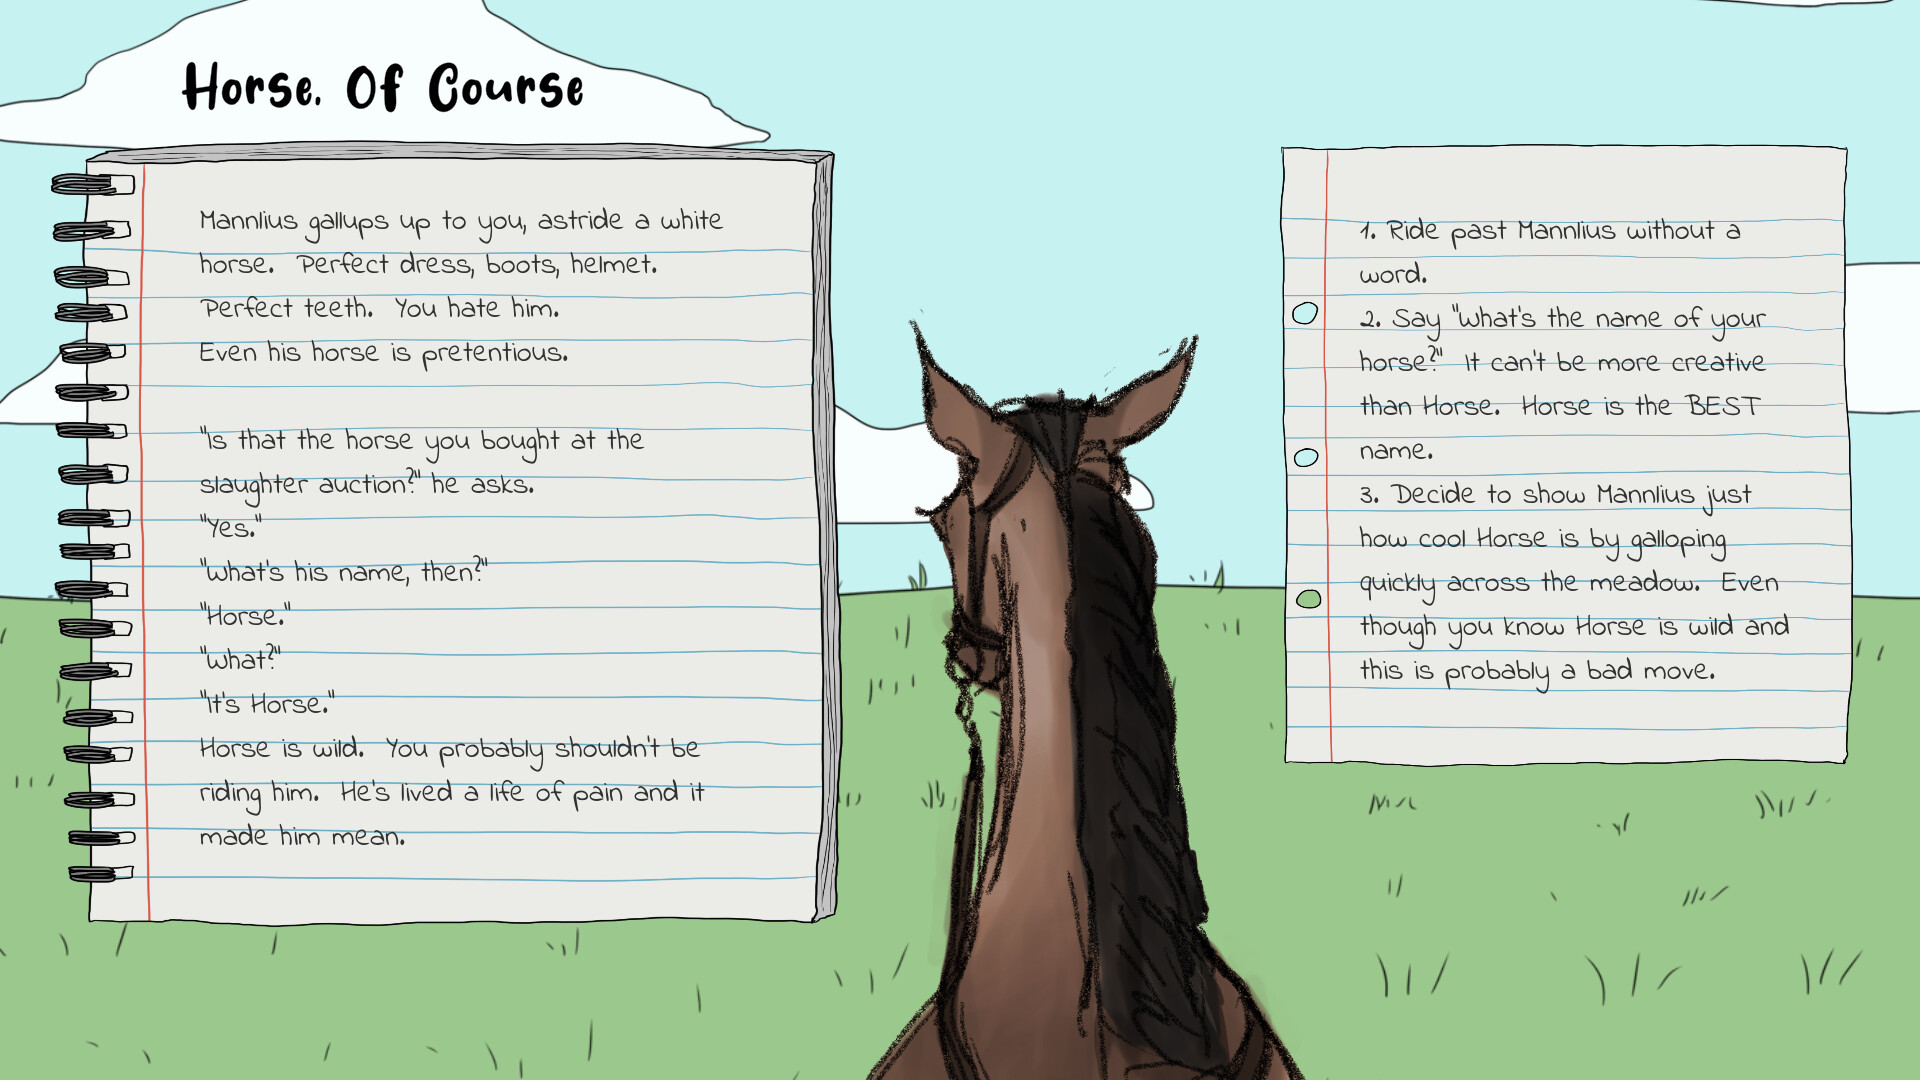 Horse. Of Course
Mannlius gallups up to you, astride a white
horse. Perfect dress, boots, helmet.
Perfect teeth. You hate him.
Even his horse is pretentious.
"Is that the horse you bought at the
slaughter auction?" he asks.
"Yes."
"What's his name, then?"
"Horse."
"What?"
"It's Horse."
Horse is wild. You probably shouldn't be
riding him. He's lived a life of pain and it
made him mean.
1. Ride past Mannlius without a
word.
2. Say "What's the name of your
horse?" It can't be more creative
than Horse. Horse is the BEST
name.
3. Decide to show Mannlius just
how cool Horse is by galloping
quickly across the meadow. Even
though you know Horse is wild and
this is probably a bad move.